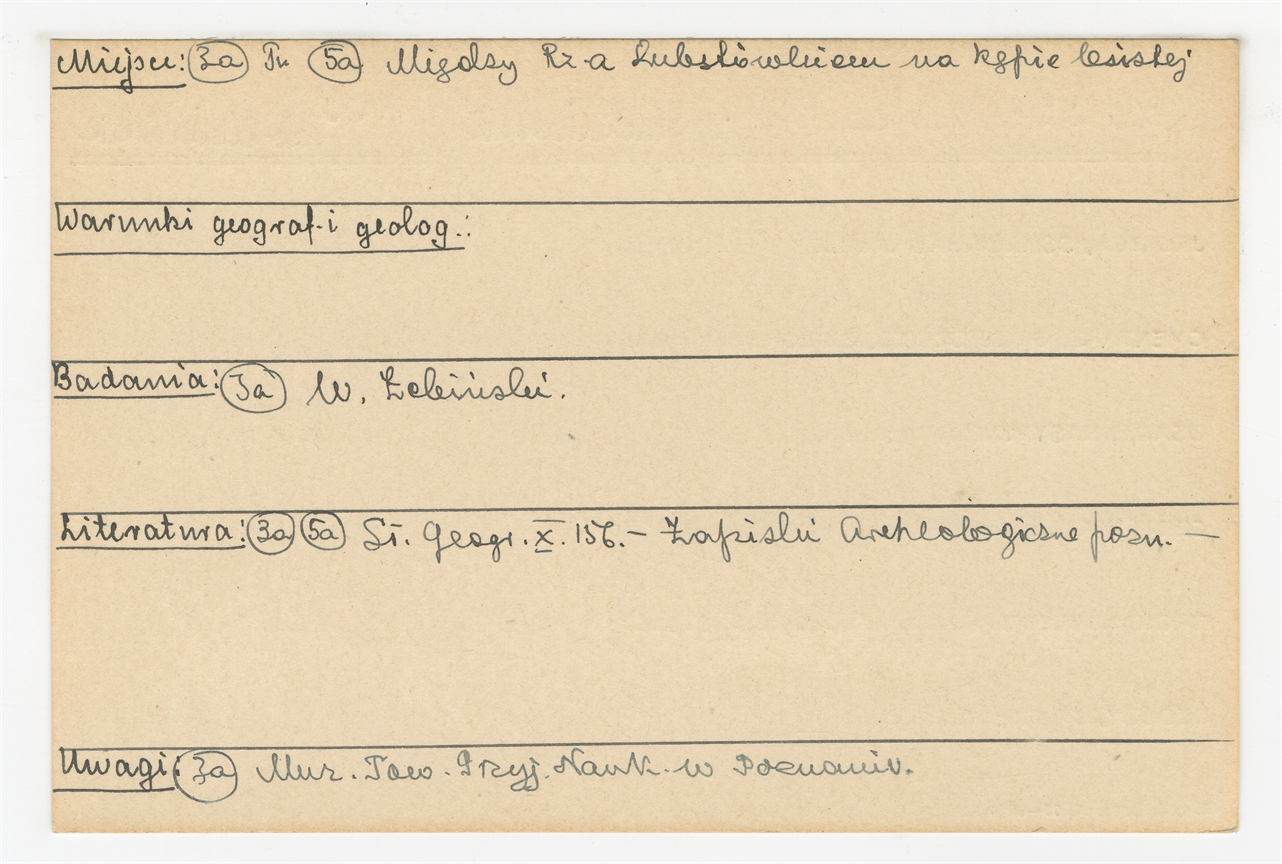 Miejsce: 3a Tu 5a Między Rz-a Lubstówkiem na kępie lesistej
Warunki geograf. i geolog.:
Badania: 3a W. Łebiński.
Literatura: 3a 5a Sł. Geogr. X. 156. – Zapiski Archeologiczne pozn. –
Uwagi: 3a Muz. Tow. Przyj. Nauk. w Poznaniu.